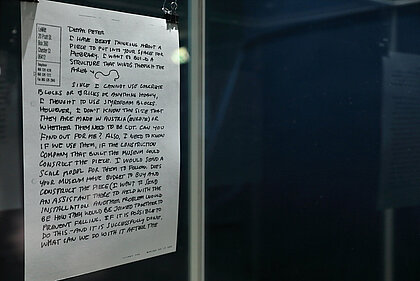 LeWitt
20 Pratt St.
Box 360
Chester Ct.
06412
DEAR PETER
I HAVE BEEN THINKING ABOUT A
PIECE TO PUT INTO YOUR SPACE FOR
FEBRUARY. I WANT TO BUILD A
STRUCTURE THAT WINDS THROUGH THE
AREA
SINCE I CANNOT USE CONCRETE
BLOCKS OR BRICKS OR ANYTHING HEAVY,
I THOUGHT TO USE STYROFOAM BLOCKS.
HOWEVER, I DON'T KNOW THE SIZE THAT
THEY ARE MADE IN AUSTRIA (EUROPE) OR
WHETHER THEY NEED TO BE CUT. CAN YOU
FIND OUT FOR ME? ALSO, I NEED TO KNOW
IF WE USE THEM, IF THE CONSTRUCTION
COMPANY THAT BUILT THE MUSEUM COULD
CONSTRUCT THE PIECE. I WOULD SEND A
SCALE MODEL FOR THEM TO FOLLOW. DOES
YOUR MUSEUM HAVE BUDGET TO BUY AND
CONSTRUCT THE PIECE (I WANT TO SEND
AN ASSISTANT THERE TO HELP WITH THE
INSTALLATION. ANOTHER PROBLEM WOULD
BE HOW THEY WOULD BE JOINED TOGETHER TO
PREVENT FALLING. IF IT IS POSSIBLE TO
DO THIS - AND IT IS SUCCESSFULLY DONE,
WHAT CAN WE DO WITH IT AFTER THE